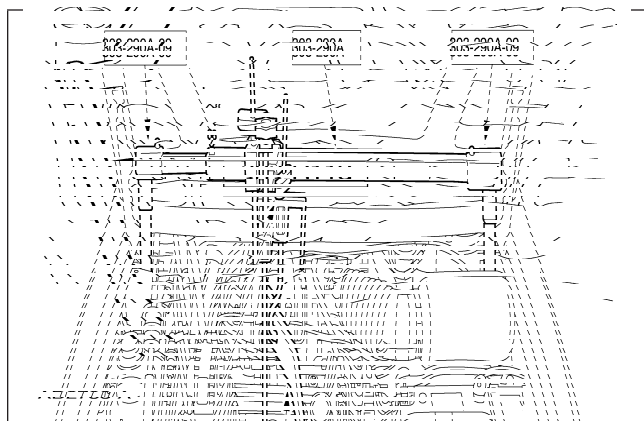 303-290A-09
303-290A
303-290A-09